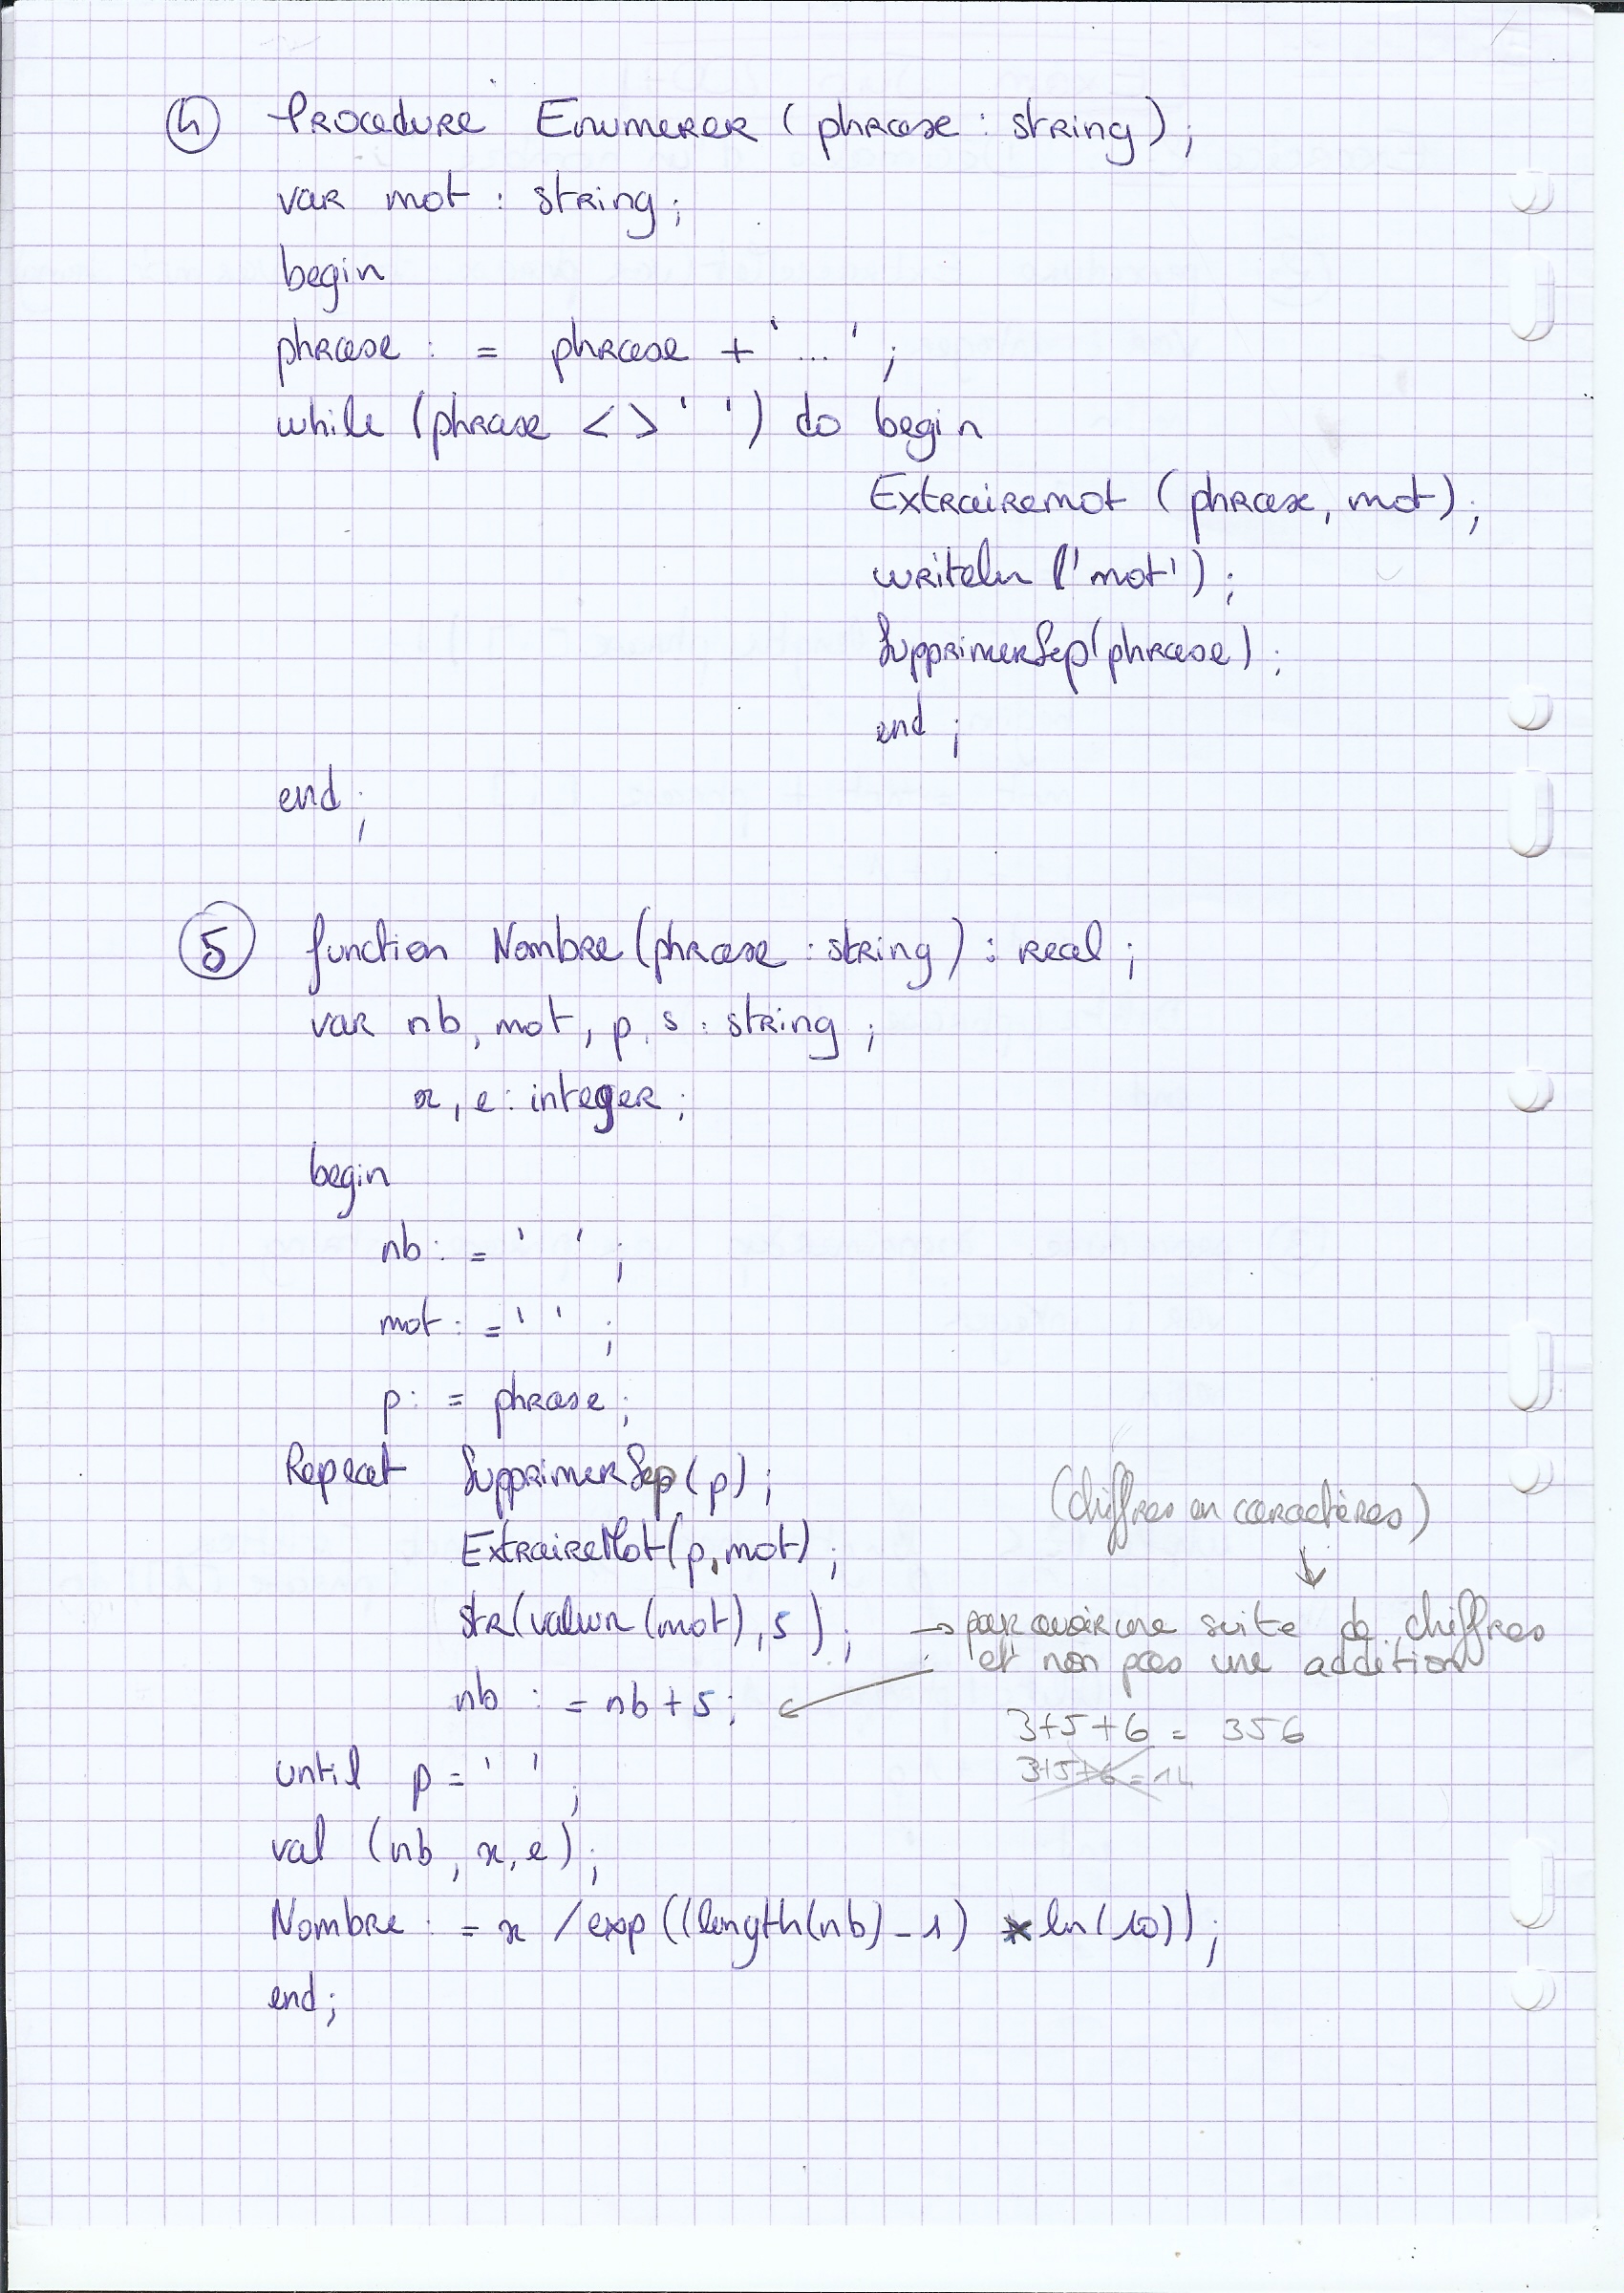 ④ Procedure Enumerer (phrase : string);
var mot : string;
begin
phrase := phrase + '...';
while (phrase <> ' ') do begin
Extrairemot (phrase, mot);
writeln ('mot');
SupprimerSep(phrase);
end;
end;
⑤ function Nombre (phrase : string) : real;
var nb, mot, p, s : string;
x, e : integer;
begin
nb := ' ';
mot := ' ';
p := phrase;
Repeat SupprimerSep (p);
ExtraireMot (p, mot);
(chiffres en caractères)
↓
str(valeur (mot), s); → pour avoir une suite de chiffres
et non pas une addition
nb := nb + s;
3+5+6 = 356
3+5+6 = 14
until p = ' ';
val (nb, x, e);
Nombre := x / exp ((length(nb) - 1) * ln (10));
end;